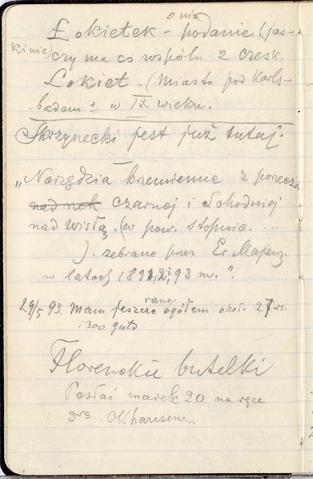 o nim
Łokietek - podanie (jas-
kinie) czy ma co wspóln. z czesk.
Lokiet. (Miasto pod Karls-
badem ± w IX wieku.
Skrzynecki jest już tutaj.
„Narzędzia krzemienne z porzecza
nad Czarnej i Schodniej
nad Wisłą (w pow. stopnic. ...
). zebrane przez Er. Majew.
w latach 1891, 2, i 93 m.".
29/5 93. Mam jeszcze rano ogółem około 27 rs.
i 300 guld
Florenckie butelki
Posłać marek 20 na ręce
dra Olshausena